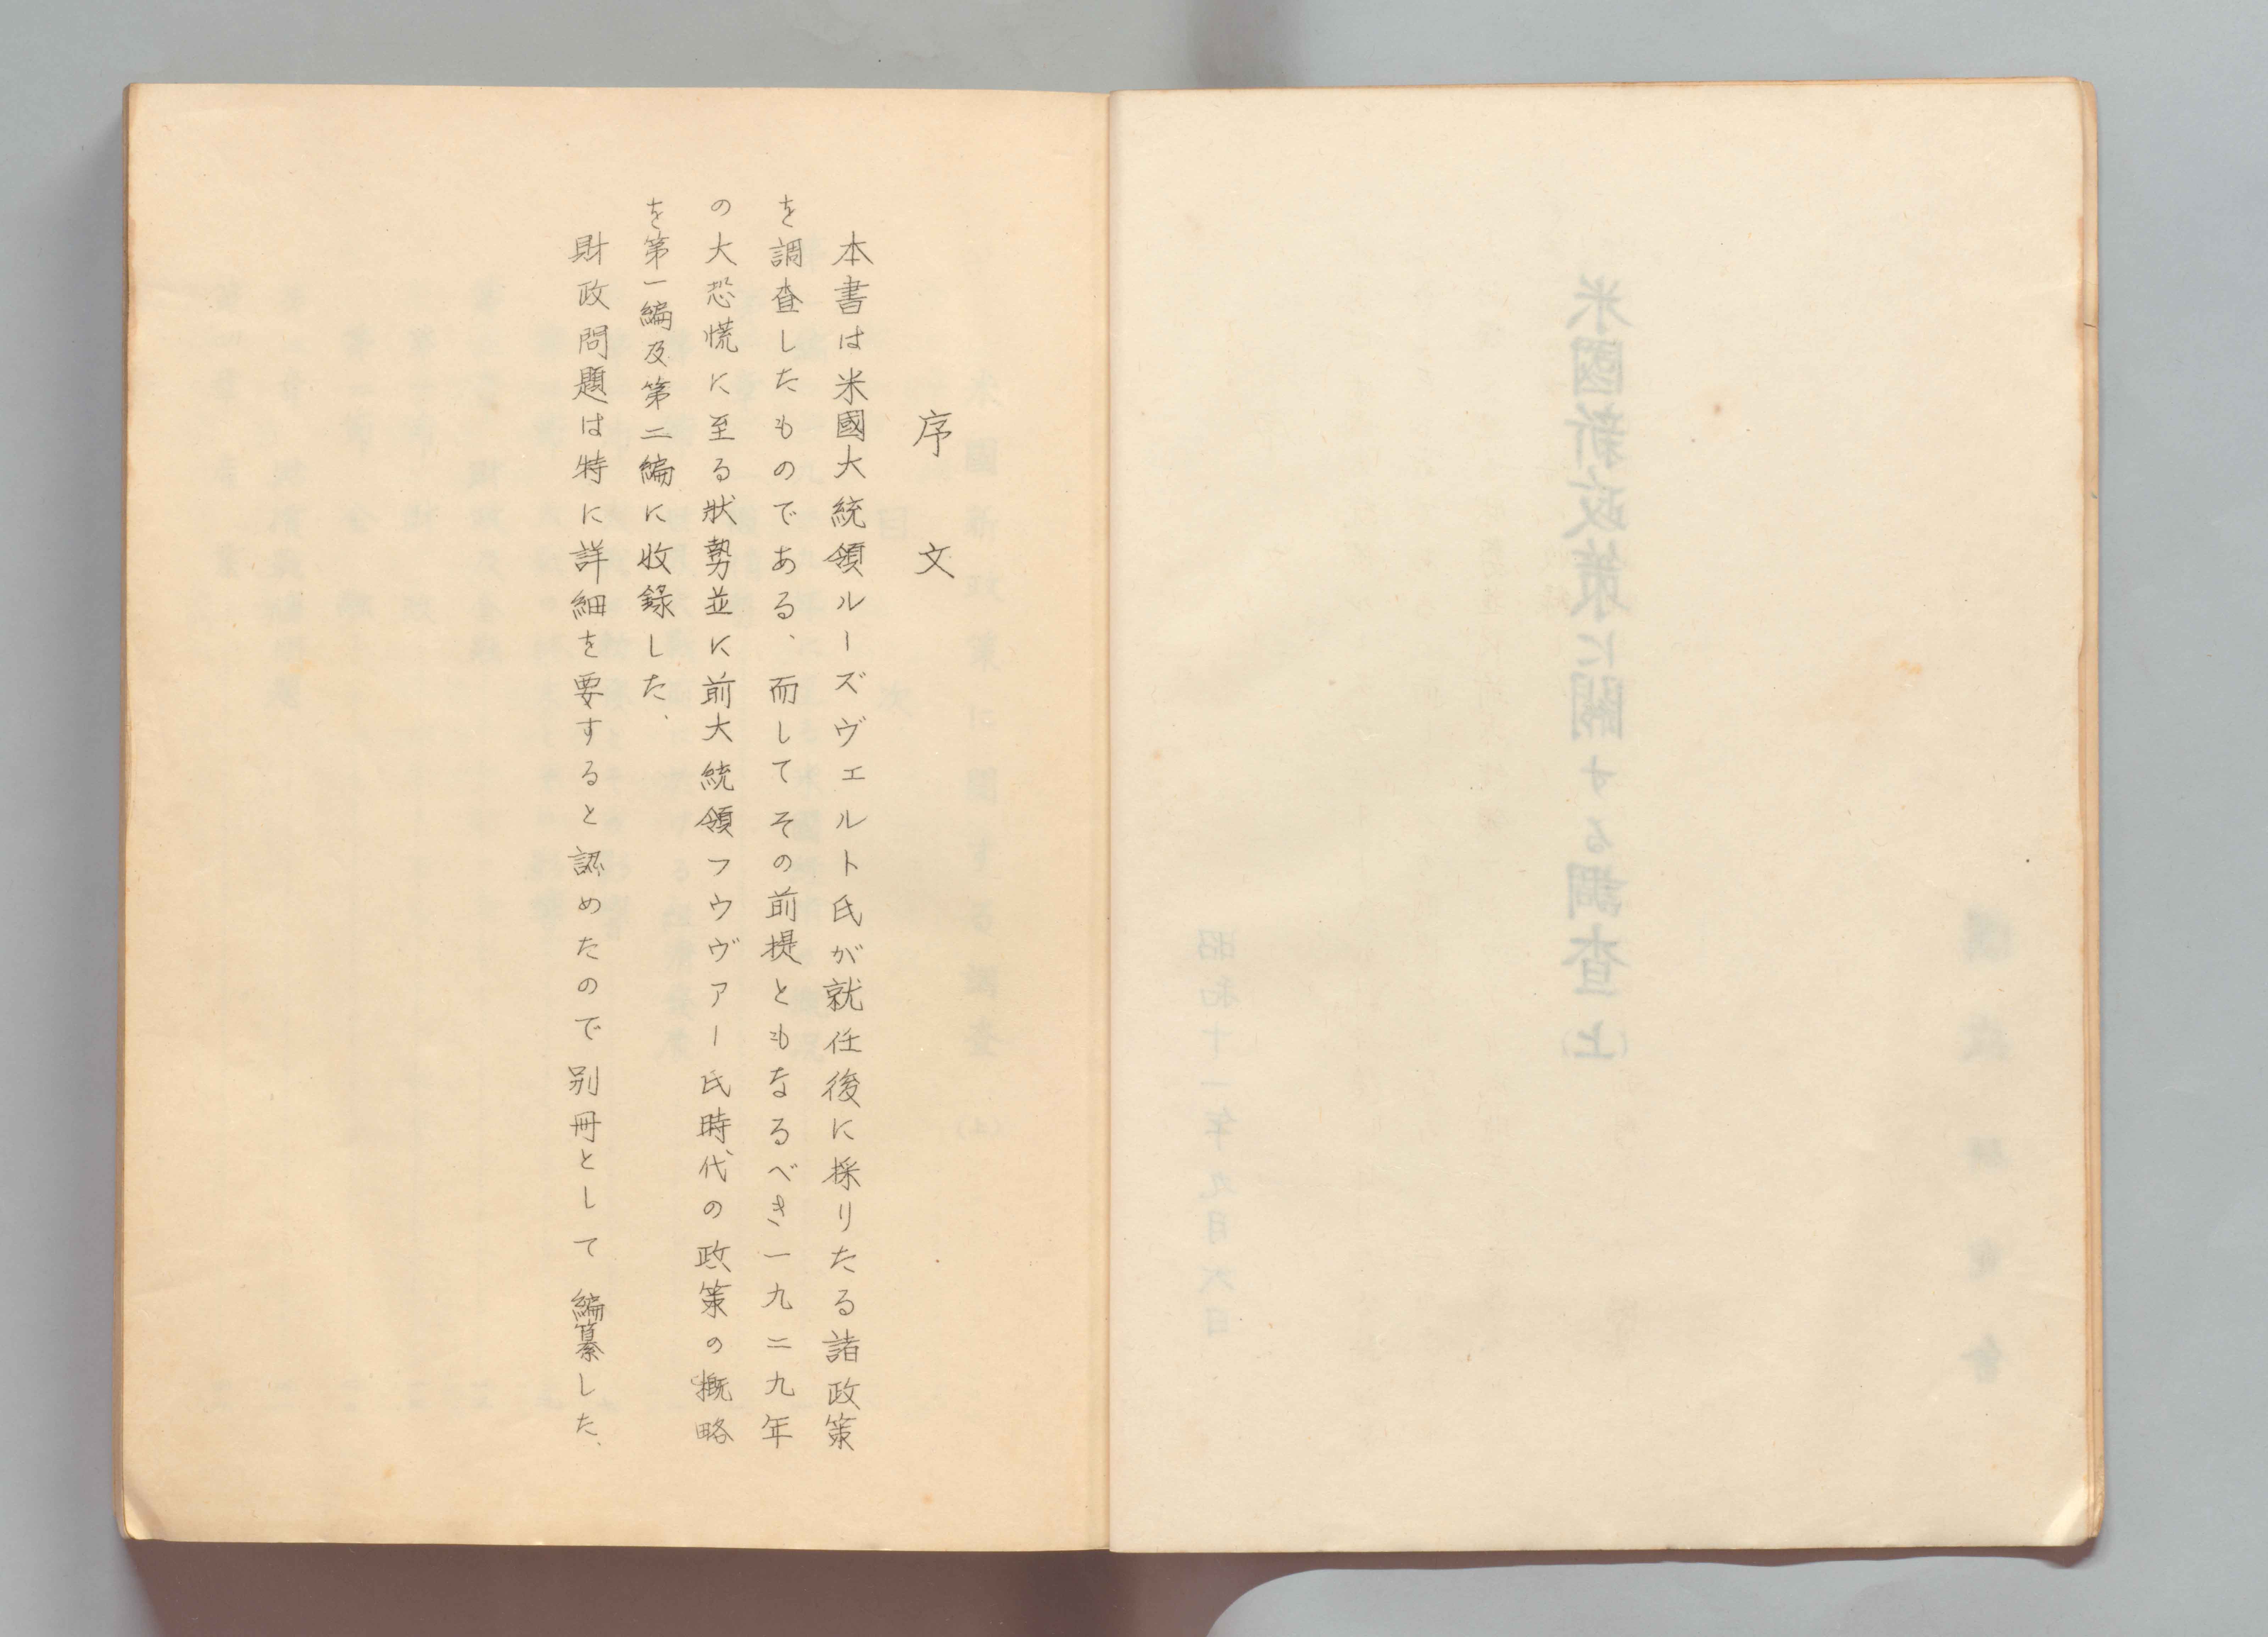 米國新政策に關する調査(上)
昭和十一年九月六日
序文
本書は米國大統領ルーズヴェルト氏が就任後に採りたる諸政策
を調査したものである、而してその前提ともなるべき一九二九年
の大恐慌に至る狀勢並に前大統領フウヴァー氏時代の政策の概略
を第一編及第二編に收錄した、
財政問題は特に詳細を要すると認めたので別冊として編纂した、